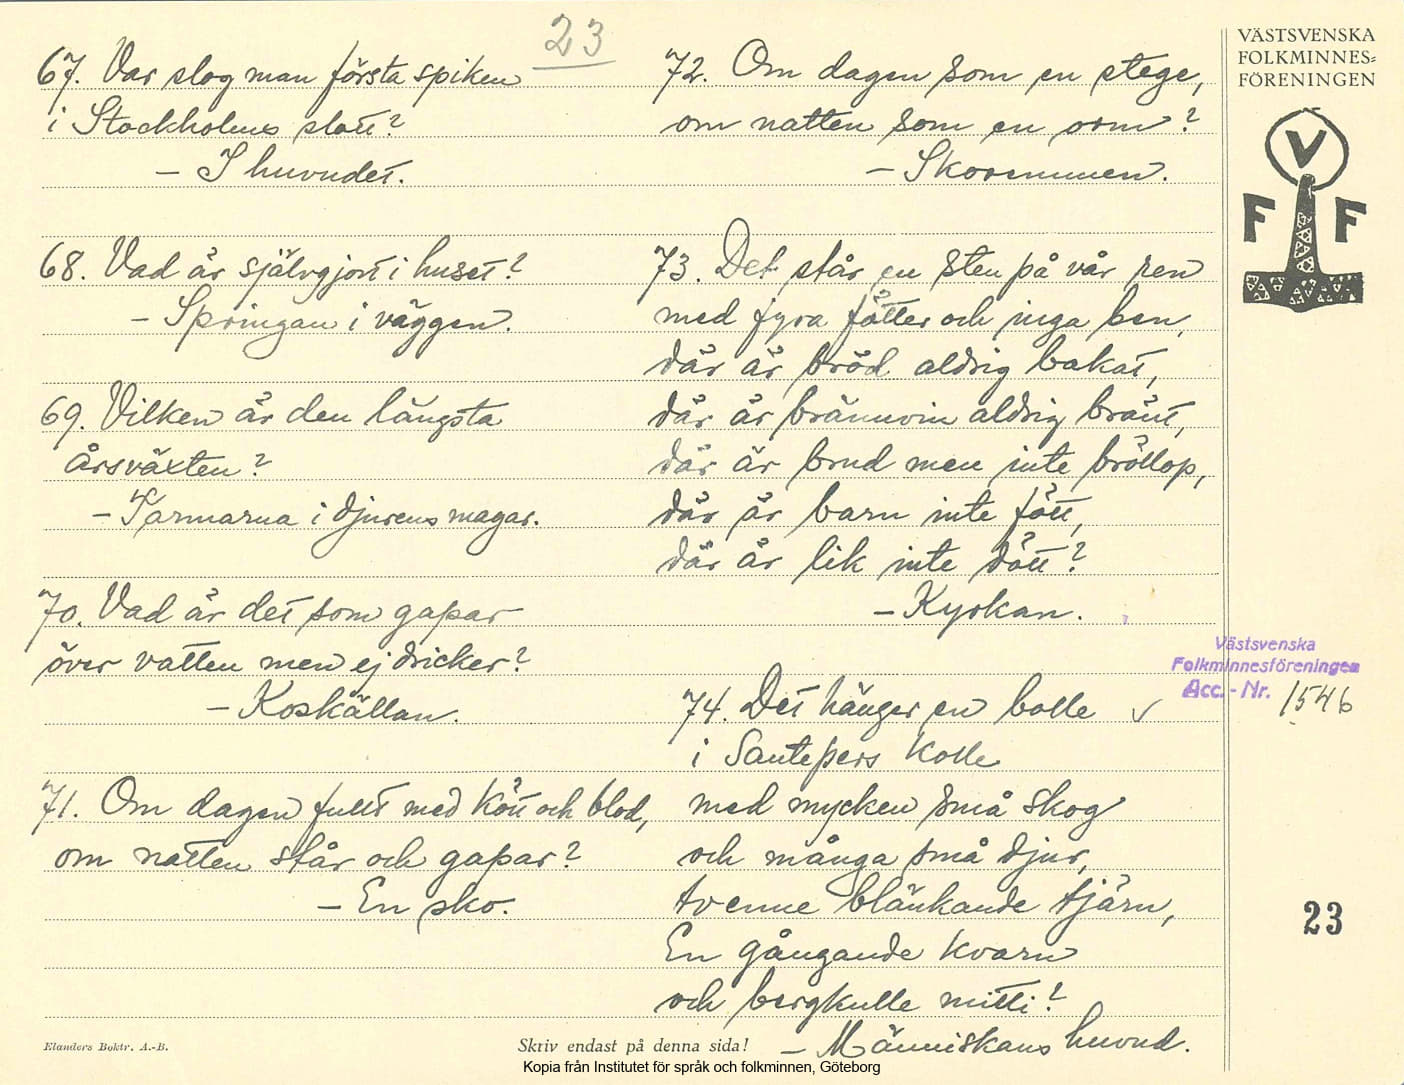 23
67. Var slog man första spiken
i Stockholms slott?
– I huvudet.
68. Vad är självgjort i huset?
– Springan i väggen.
69. Vilken är den längsta
årsväxten?
– Tarmarna i djurens magar.
70. Vad är det som gapar
över vatten men ej dricker?
– Koskällan.
71. Om dagen fullt med kött och blod,
om natten står och gapar?
– En sko.
72. Om dagen som en stege,
om natten som en orm?
– Skoremmen.
73. Det står en sten på vår ren
med fyra fötter och inga ben,
där är bröd aldrig bakat,
där är brännvin aldrig bränt,
där är brud men inte bröllop,
där är barn inte fött,
där är lik inte dött?
– Kyrkan.
74. Det hänger en bolle
i Santepers kolle
med mycken små skog
och många små djur,
tvenne blänkande tjärn,
En gångande kvarn
och bergkulle mitti?
– Människans huvud.
VÄSTSVENSKA
FOLKMINNES=
FÖRENINGEN
V
F F
Västsvenska
Folkminnesföreningen
Acc.-Nr. 1546
23
Elanders Boktr. A.-B.
Skriv endast på denna sida!
Kopia från Institutet för språk och folkminnen, Göteborg